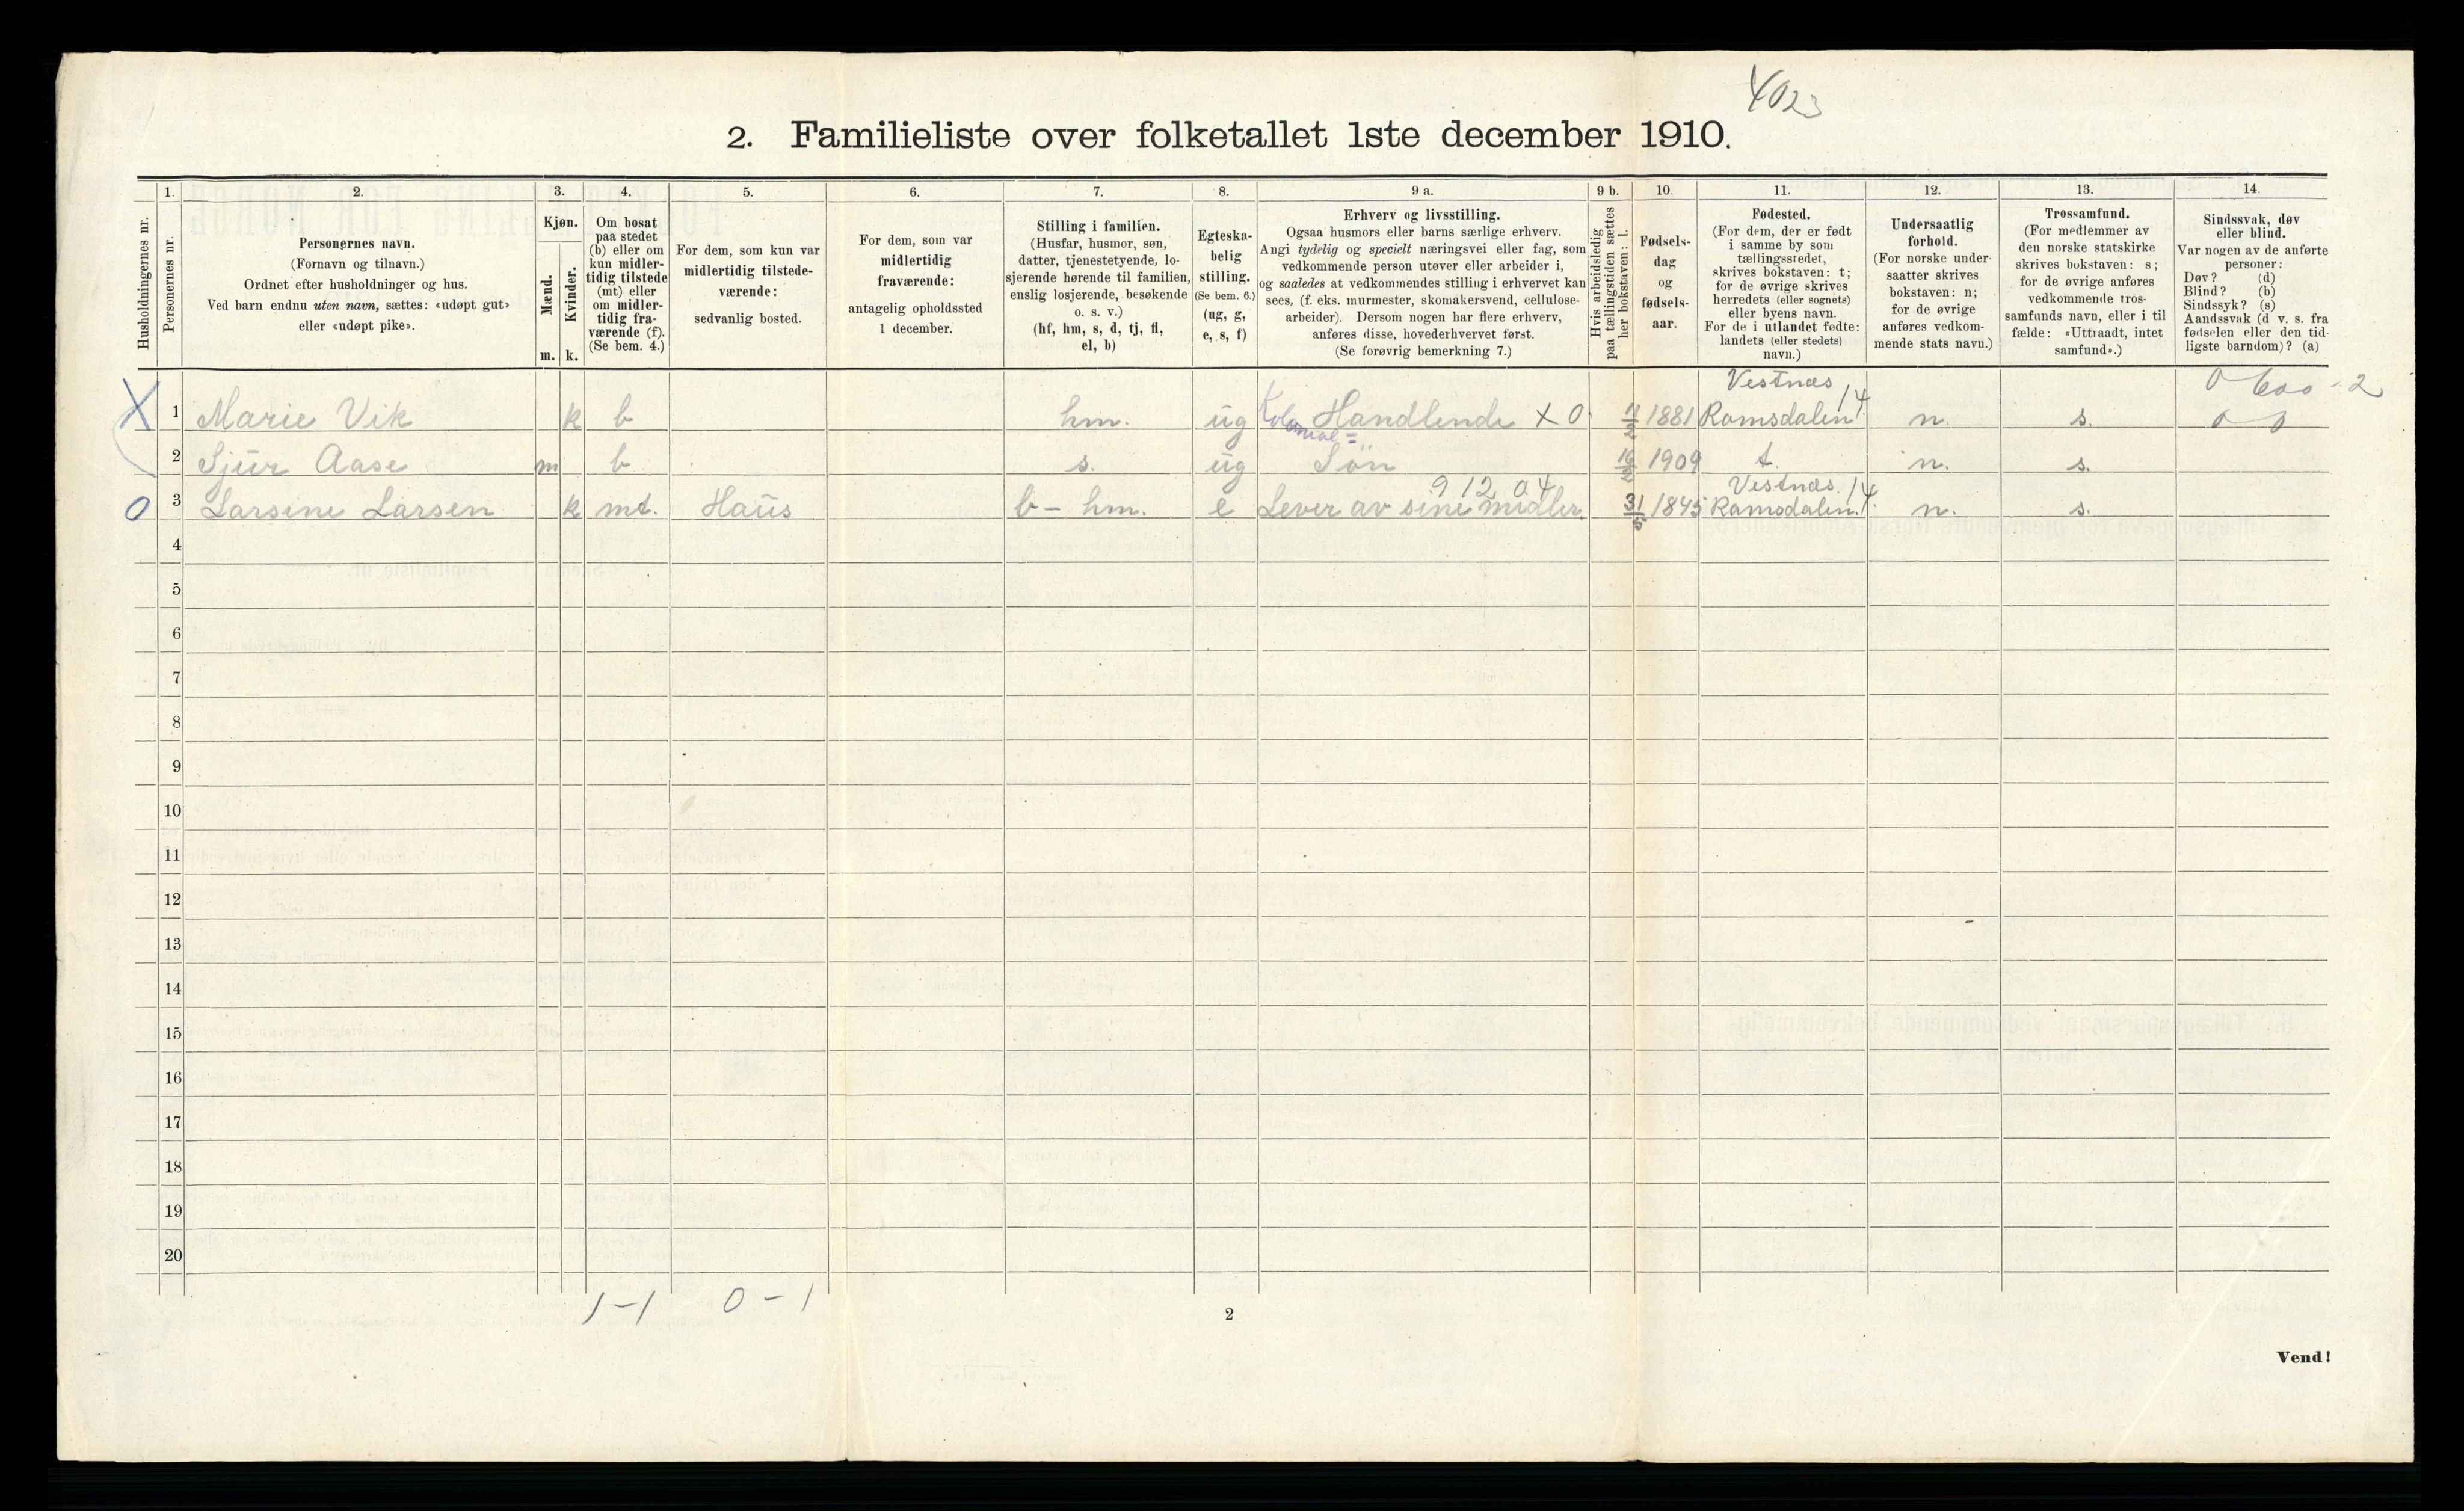 4023
2. Familieliste over folketallet 1ste december 1910.
Husholdningernes nr.
1.
Personernes nr.
2.
Personernes navn.
(Fornavn og tilnavn.)
Ordnet efter husholdninger og hus.
Ved barn endnu uten navn, sættes: «udøpt gut»
eller «udøpt pike».
3.
Kjøn.
Mænd.
Kvinder.
m. k.
4.
Om bosat
paa stedet
(b) eller om
kun midler-
tidig tilstede
(mt) eller
om midler-
tidig fra-
værende (f).
(Se bem. 4.)
5.
For dem, som kun var
midlertidig tilstede-
værende:
sedvanlig bosted.
6.
For dem, som var
midlertidig
fraværende:
antagelig opholdssted
1 december.
7.
Stilling i familien.
(Husfar, husmor, søn,
datter, tjenestetyende, lo-
sjerende hørende til familien,
enslig losjerende, besøkende
o. s. v.)
(hf, hm, s, d, tj, fl,
el, b)
8.
Egteska-
belig
stilling.
(Se bem. 6.)
(ug, g,
e, s, f)
9 a.
Erhverv og livsstilling.
Ogsaa husmors eller barns særlige erhverv.
Angi tydelig og specielt næringsvei eller fag, som
vedkommende person utøver eller arbeider i,
og saaledes at vedkommendes stilling i erhvervet kan
sees, (f. eks. murmester, skomakersvend, cellulose-
arbeider). Dersom nogen har flere erhverv,
anføres disse, hovederhvervet først.
(Se forøvrig bemerkning 7.)
9 b.
Hvis arbeidsledig
paa tællingstiden sættes
her bokstaven: l.
10.
Fødsels-
dag
og
fødsels-
aar.
11.
Fødested.
(For dem, der er født
i samme by som
tællingsstedet,
skrives bokstaven: t;
for de øvrige skrives
herredets (eller sognets)
eller byens navn.
For de i utlandet fødte:
landets (eller stedets)
navn.)
12.
Undersaatlig
forhold.
(For norske under-
saatter skrives
bokstaven: n;
for de øvrige
anføres vedkom-
mende stats navn.)
13.
Trossamfund.
(For medlemmer av
den norske statskirke
skrives bokstaven: s;
for de øvrige anføres
vedkommende tros-
samfunds navn, eller i til
fælde: «Uttraadt, intet
samfund».)
14.
Sindssvak, døv
eller blind.
Var nogen av de anførte
personer:
Døv? (d)
Blind? (b)
Sindssyk? (s)
Aandssvak (d v. s. fra
fødselen eller den tid-
ligste barndom)? (a)
Vestnæs
X 1 Marie Vik k b hm. ug Kolonial= Handlende X 0 1881 Romsdalen 14 n. s. 0 0
2 Sjur Aase m b. s. ug Søn 1909 t. n. s.
9 12 04 Vestnæs. 14
0 3 Larsine Larsen k mt. Haus b – hm. e Lever av sine midler. 31/5 1845 Romsdalen. n. s.
4
5
6
7
8
9
10
11
12
13
14
15
16
17
18
19
20
1–1 0–1
2
Vend!